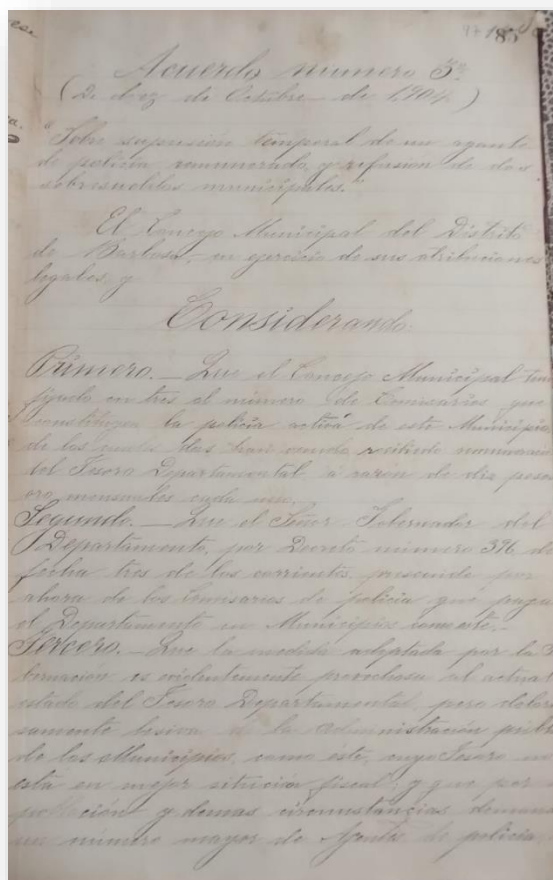 85
Acuerdo número 5º
(2. diez de Octubre de 1904)
"Sobre supresión temporal de un agente
de policía remunerado y refusión de dos
sobresueldos municipales."
El Concejo Municipal del Distrito
de Barbosa, en ejercicio de sus atribuciones
legales, y
Considerando:
Primero.— Que el Concejo Municipal tiene
fijado en tres el número de Comisarios que
constituyen la policía activa de este Municipio,
de los cuales dos han venido recibiendo
del Tesoro Departamental a razón de diez pesos
oro mensuales cada uno.
Segundo.— Que el Señor Gobernador del
Departamento, por Decreto número 396 de
fecha tres de los corrientes, prescinde por
ahora de los Comisarios de policía que paga
el Departamento en Municipios como éste.
Tercero.— Que la medida adoptada por la
bernación es evidentemente provechosa al actual
estado del Tesoro Departamental, pero
samente lesiva de la administración
de los Municipios, como éste, cuyo Tesoro no
está en mejor situación fiscal; y que por
población y demas circunstancias
un número mayor de Agentes de policía